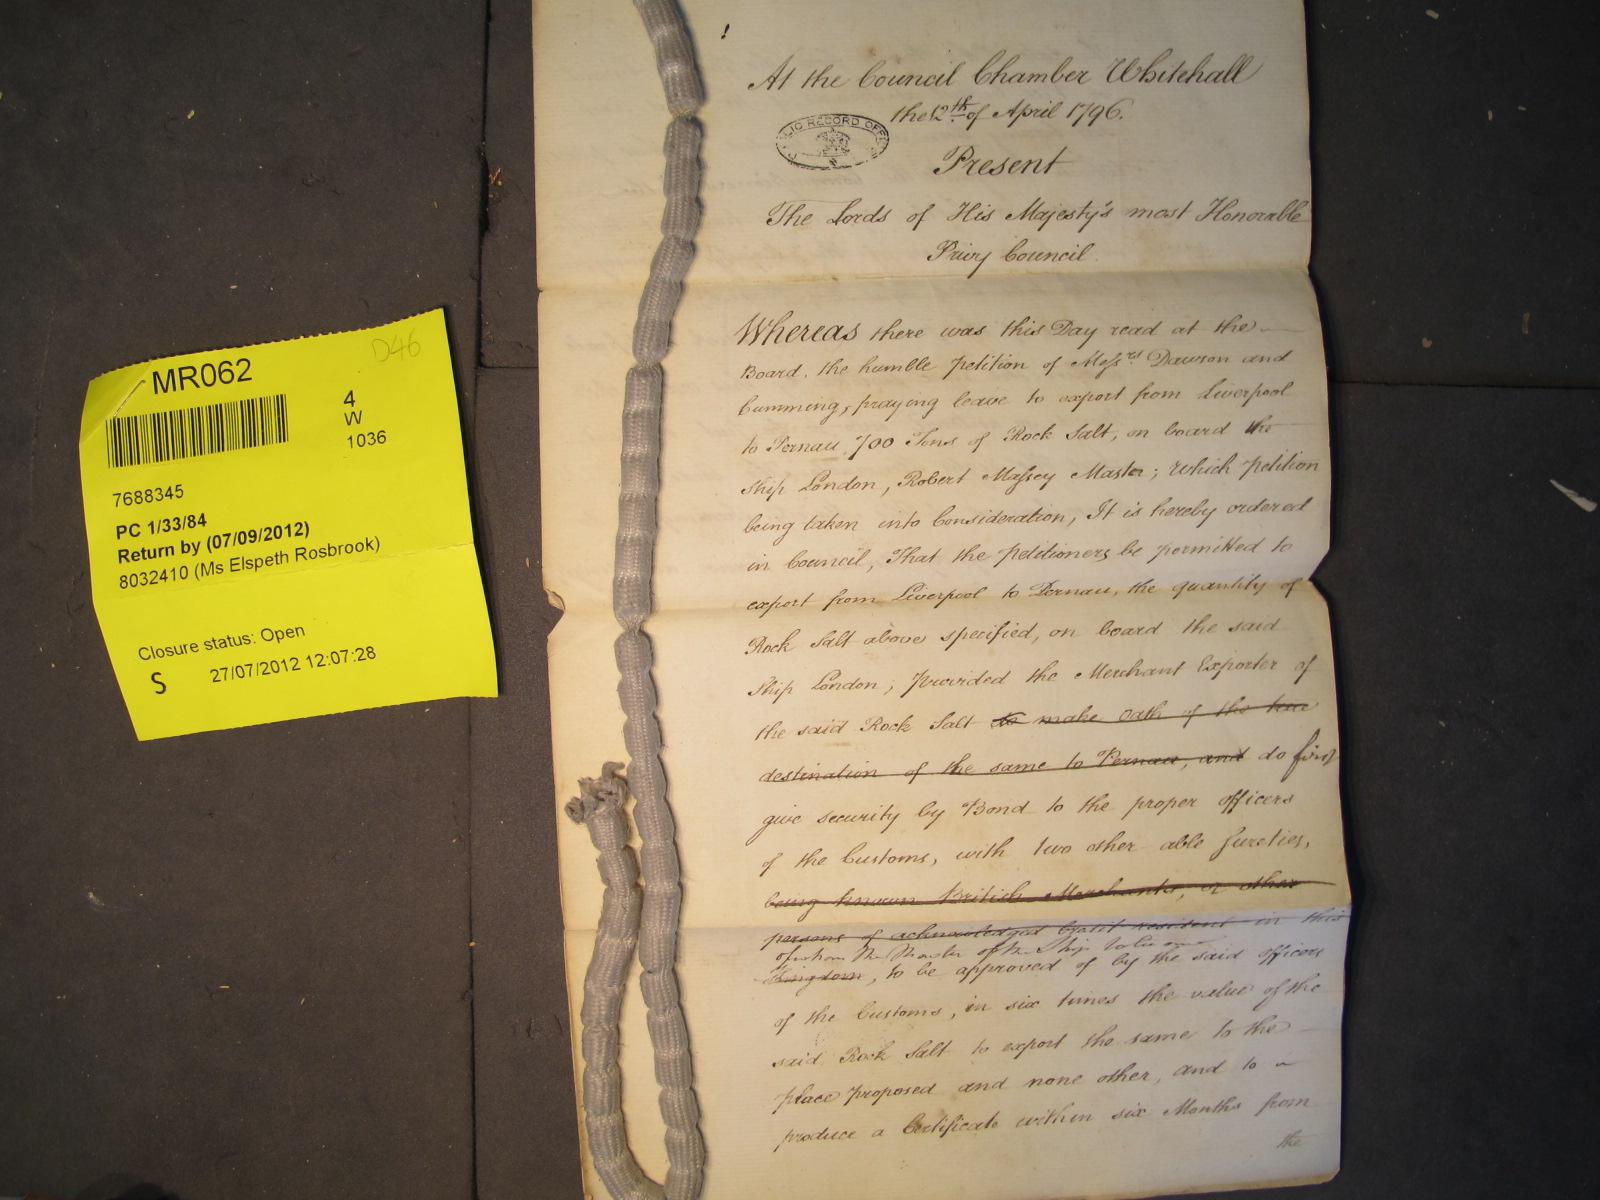 D46
MR062
4
W
1036
7688345
PC 1/33/84
Return by (07/09/2012)
8032410 (Ms Elspeth Rosbrook)
Closure status: Open
S 27/07/2012 12:07:28
At the Council Chamber Whitehall
the 12th of April 1796.
PUBLIC RECORD OFFICE
Present
The Lords of His Majesty's most Honorable
Privy Council.
Whereas there was this Day read at the
Board, the humble petition of Messrs. Dawson and
Cumming, praying leave to export from Liverpool
to Pernau 700 Tons of Rock Salt, on board the
Ship London, Robert Massey Master; which petition
being taken into Consideration, It is hereby ordered
in Council, That the petitioners be permitted to
export from Liverpool to Pernau, the quantity of
Rock Salt above specified, on board the said
Ship London; provided the Merchant Exporter of
the said Rock Salt do make Oath of the true
destination of the same to Pernau, and do first
give security by Bond to the proper officers
of the Customs, with two other able sureties,
being known British Merchants, or other
persons of acknowledged Credit resident in this
of whom the Master of the Ship to be one
Kingdom, to be approved of by the said officers
of the Customs, in six times the value of the
said Rock Salt to export the same to the
place proposed and none other, and to
produce a Certificate within six Months from
the